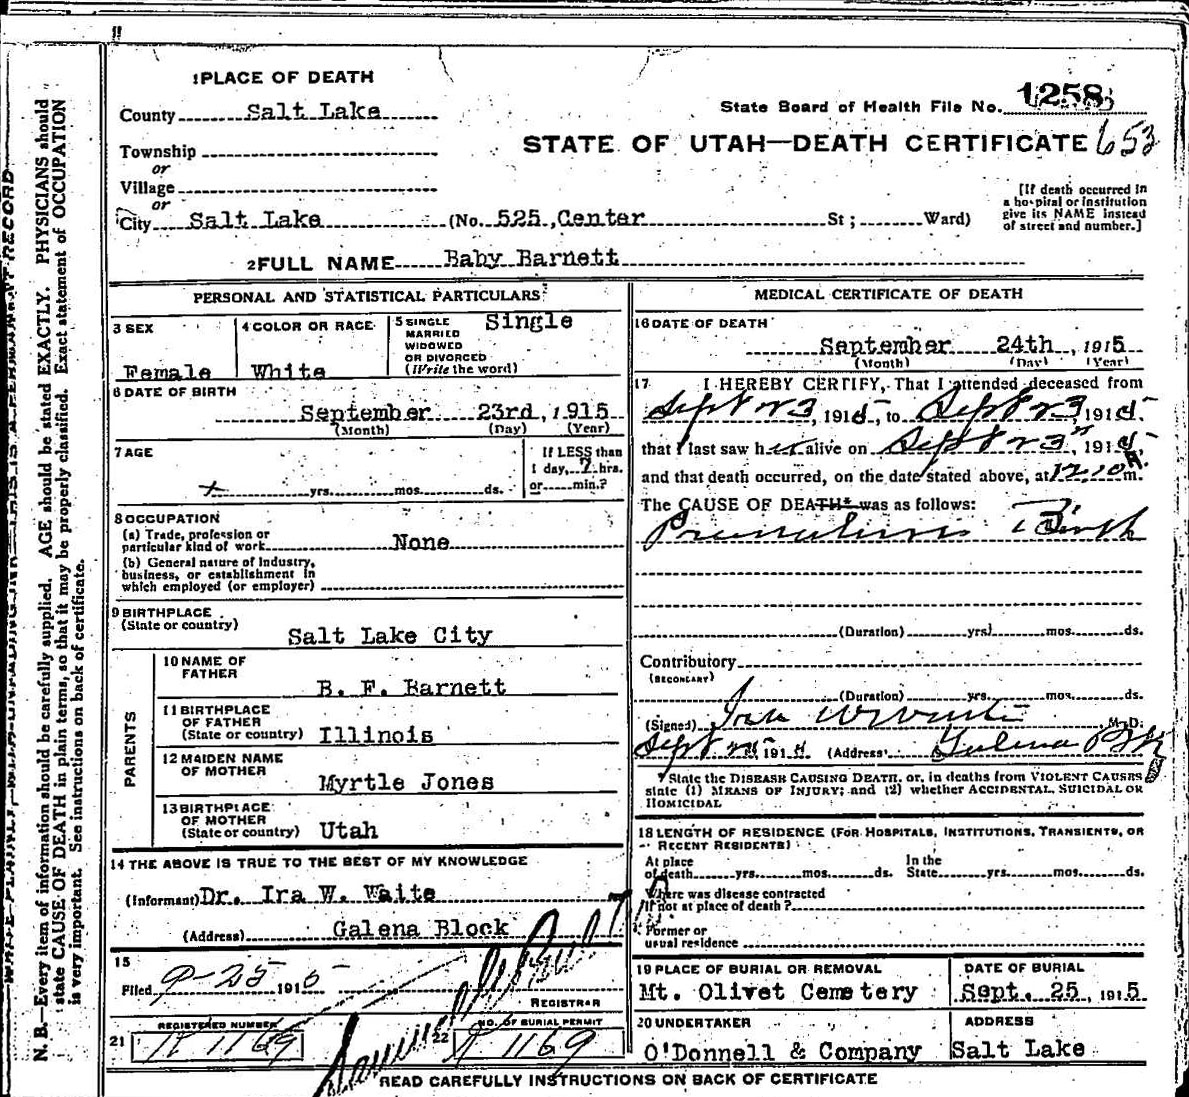 1 PLACE OF DEATH
County Salt Lake
State Board of Health File No. 1258
STATE OF UTAH—DEATH CERTIFICATE 653
Township
or
Village
or
City Salt Lake (No. 525 Center St; Ward)
[If death occurred in
a hospital or institution
give its NAME instead
of street and number.]
2 FULL NAME Baby Barnett
PERSONAL AND STATISTICAL PARTICULARS
3 SEX
Female
4 COLOR OR RACE
White
5 SINGLE
MARRIED
WIDOWED
OR DIVORCED
(Write the word)
Single
6 DATE OF BIRTH
September 23rd, 1915
(Month) (Day) (Year)
7 AGE
yrs. mos. ds.
If LESS than
1 day, 7 hrs.
or min.?
8 OCCUPATION
(a) Trade, profession or
particular kind of work None
(b) General nature of Industry,
business, or establishment in
which employed (or employer)
9 BIRTHPLACE
(State or country)
Salt Lake City
PARENTS
10 NAME OF
FATHER
B. F. Barnett
11 BIRTHPLACE
OF FATHER
(State or country) Illinois
12 MAIDEN NAME
OF MOTHER
Myrtle Jones
13 BIRTHPLACE
OF MOTHER
(State or country) Utah
14 THE ABOVE IS TRUE TO THE BEST OF MY KNOWLEDGE
(Informant) Dr. Ira W. Waite
(Address) Galena Block
15
Filed 9-25 1915
REGISTRAR
REGISTERED NUMBER
21 R 1169
NO. OF BURIAL PERMIT
22 R 1169
MEDICAL CERTIFICATE OF DEATH
16 DATE OF DEATH
September 24th, 1915
(Month) (Day) (Year)
17 I HEREBY CERTIFY, That I attended deceased from
Sept 23, 1915, to Sept 23, 1915
that I last saw her alive on Sept 23", 1915,
and that death occurred, on the date stated above, at 12.10 A m.
The CAUSE OF DEATH* was as follows:
Premature Birth
(Duration) yrs. mos. ds.
Contributory
(SECONDARY)
(Duration) yrs. mos. ds.
(Signed) Ira W Waite M. D.
Sept 25 1915 (Address) Galena Blk
*State the DISEASE CAUSING DEATH, or, in deaths from VIOLENT CAUSES
state (1) MEANS OF INJURY; and (2) whether ACCIDENTAL, SUICIDAL OR
HOMICIDAL
18 LENGTH OF RESIDENCE (FOR HOSPITALS, INSTITUTIONS, TRANSIENTS, OR
RECENT RESIDENTS)
At place
of death yrs. mos. ds.
In the
State yrs. mos. ds.
Where was disease contracted
if not at place of death?
Former or
usual residence
19 PLACE OF BURIAL OR REMOVAL
Mt. Olivet Cemetery
DATE OF BURIAL
Sept. 25, 1915
20 UNDERTAKER
O'Donnell & Company
ADDRESS
Salt Lake
READ CAREFULLY INSTRUCTIONS ON BACK OF CERTIFICATE
WRITE PLAINLY, WITH UNFADING INK—THIS IS A PERMANENT RECORD
N. B.—Every item of information should be carefully supplied. AGE should be stated EXACTLY. PHYSICIANS should
state CAUSE OF DEATH in plain terms, so that it may be properly classified. Exact statement of OCCUPATION
is very important. See instructions on back of certificate.